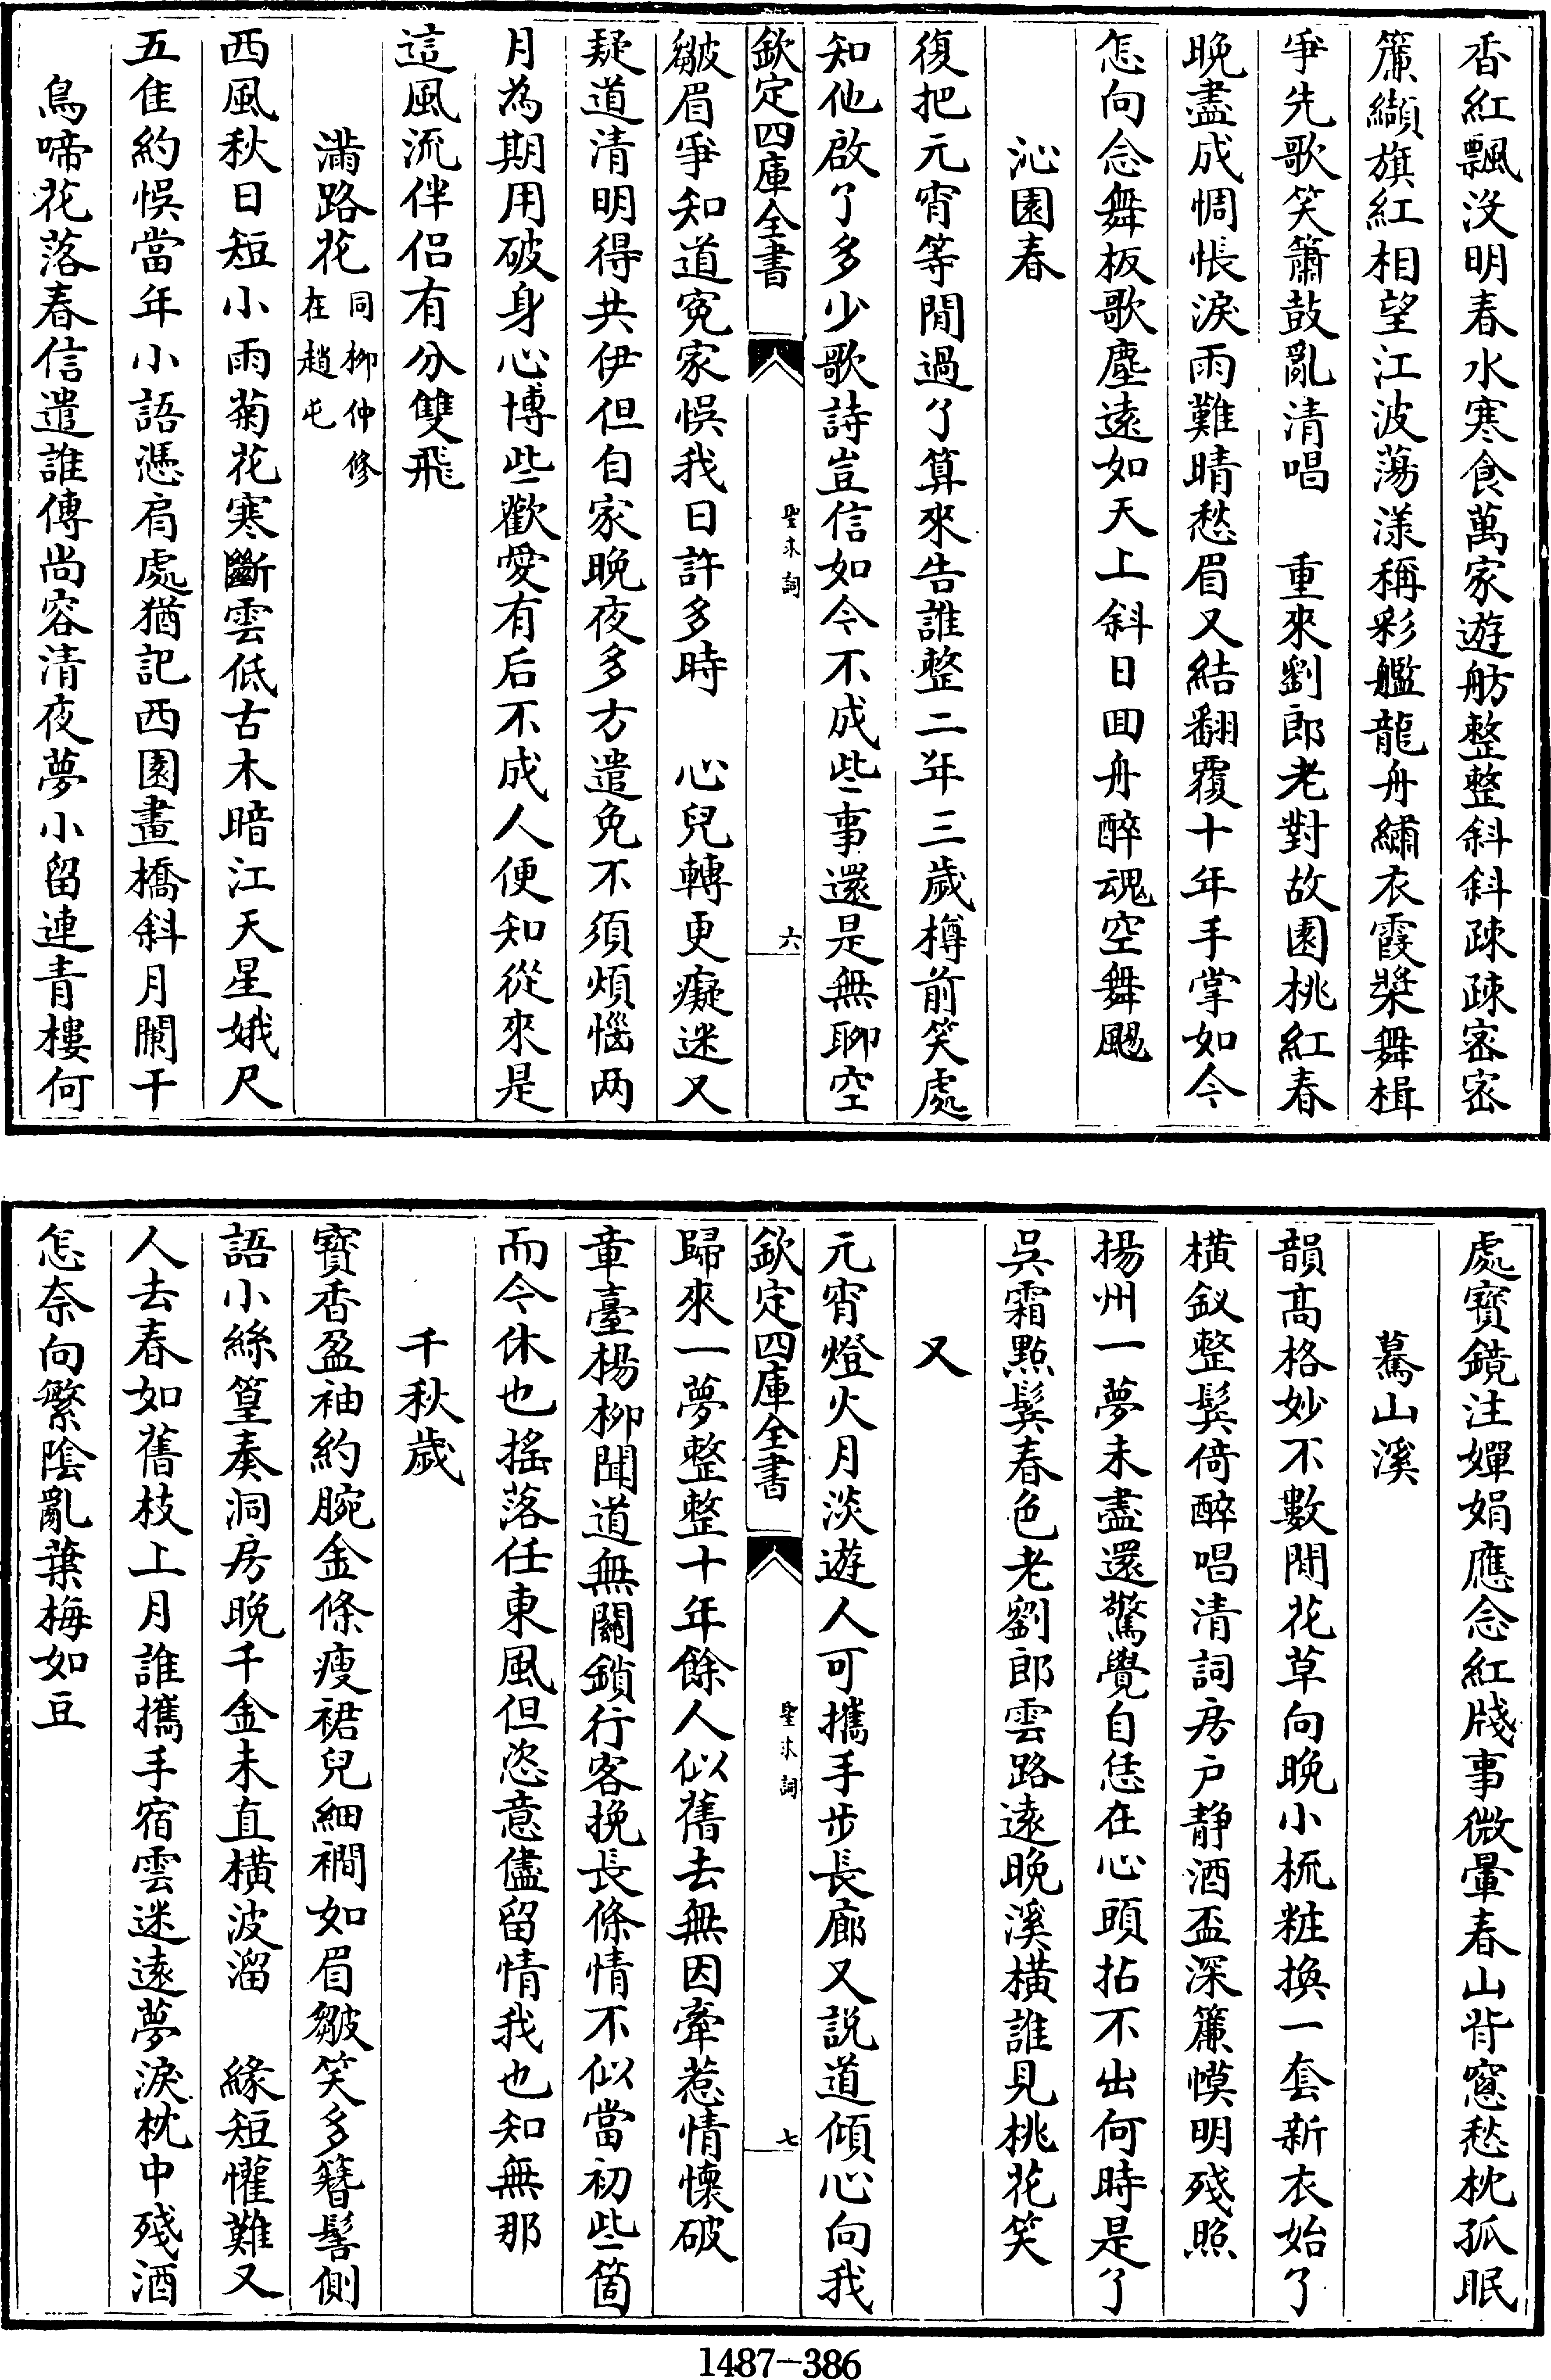 香紅飄沒明春水寒食萬家遊舫整整斜斜疎疎密密
簾纈旗紅相望江波蕩漾稱彩艦龍舟繡衣霞槳舞楫
爭先歌笑簫鼓亂清唱　重來劉郎老對故園桃紅春
晩盡成惆悵淚雨難晴愁眉又結翻覆十年手掌如今
怎向念舞板歌塵遠如天上斜日囬舟醉魂空舞颺
沁園春
復把元宵等閒過了算來告誰整二年三歲樽前笑處
知他啟了多少歌詩豈信如今不成些事還是無聊空
欽定四庫全書
聖求詞
六
皺眉爭知道寃家悞我日許多時　心兒轉更癡迷又
疑道清明得共伊但自家晩夜多方遣免不須煩惱两
月為期用破身心博些歡愛有后不成人便知從來是
這風流伴侣有分雙飛
滿路花同柳仲修在趙屯
西風秋日短小雨菊花寒斷雲低古木暗江天星娥尺
五隹約悞當年小語憑肩處猶記西園畫橋斜月闌干
鳥啼花落春信遣誰傳尚容清夜夢小留連青樓何
處寳鏡注嬋娟應念紅牋事微暈春山背窓愁枕孤眠
驀山溪
韻髙格妙不數閒花草向晩小梳粧換一套新衣始了
橫釵整鬂倚醉唱清詞房户静酒盃深簾幙明殘照
揚州一夢未盡還驚覺自恁在心頭拈不出何時是了
吳霜點鬂春色老劉郎雲路遠晩溪橫誰見桃花笑
又
元宵燈火月淡遊人可攜手步長廊又説道傾心向我
欽定四庫全書
聖求詞
七
歸來一夢整整十年餘人似舊去無因牽惹情懐破
章臺楊柳聞道無關鎖行客挽長條情不似當初些箇
而今休也揺落任東風但恣意儘留情我也知無那
千秋歲
寳香盈袖約腕金條瘦裙兒細襉如眉皺笑多簪髻側
語小絲篁奏洞房晩千金未直橫波溜　緣短懽難又
人去春如舊枝上月誰攜手宿雲迷遠夢淚枕中殘酒
怎奈向繁陰亂葉梅如豆
1487—386